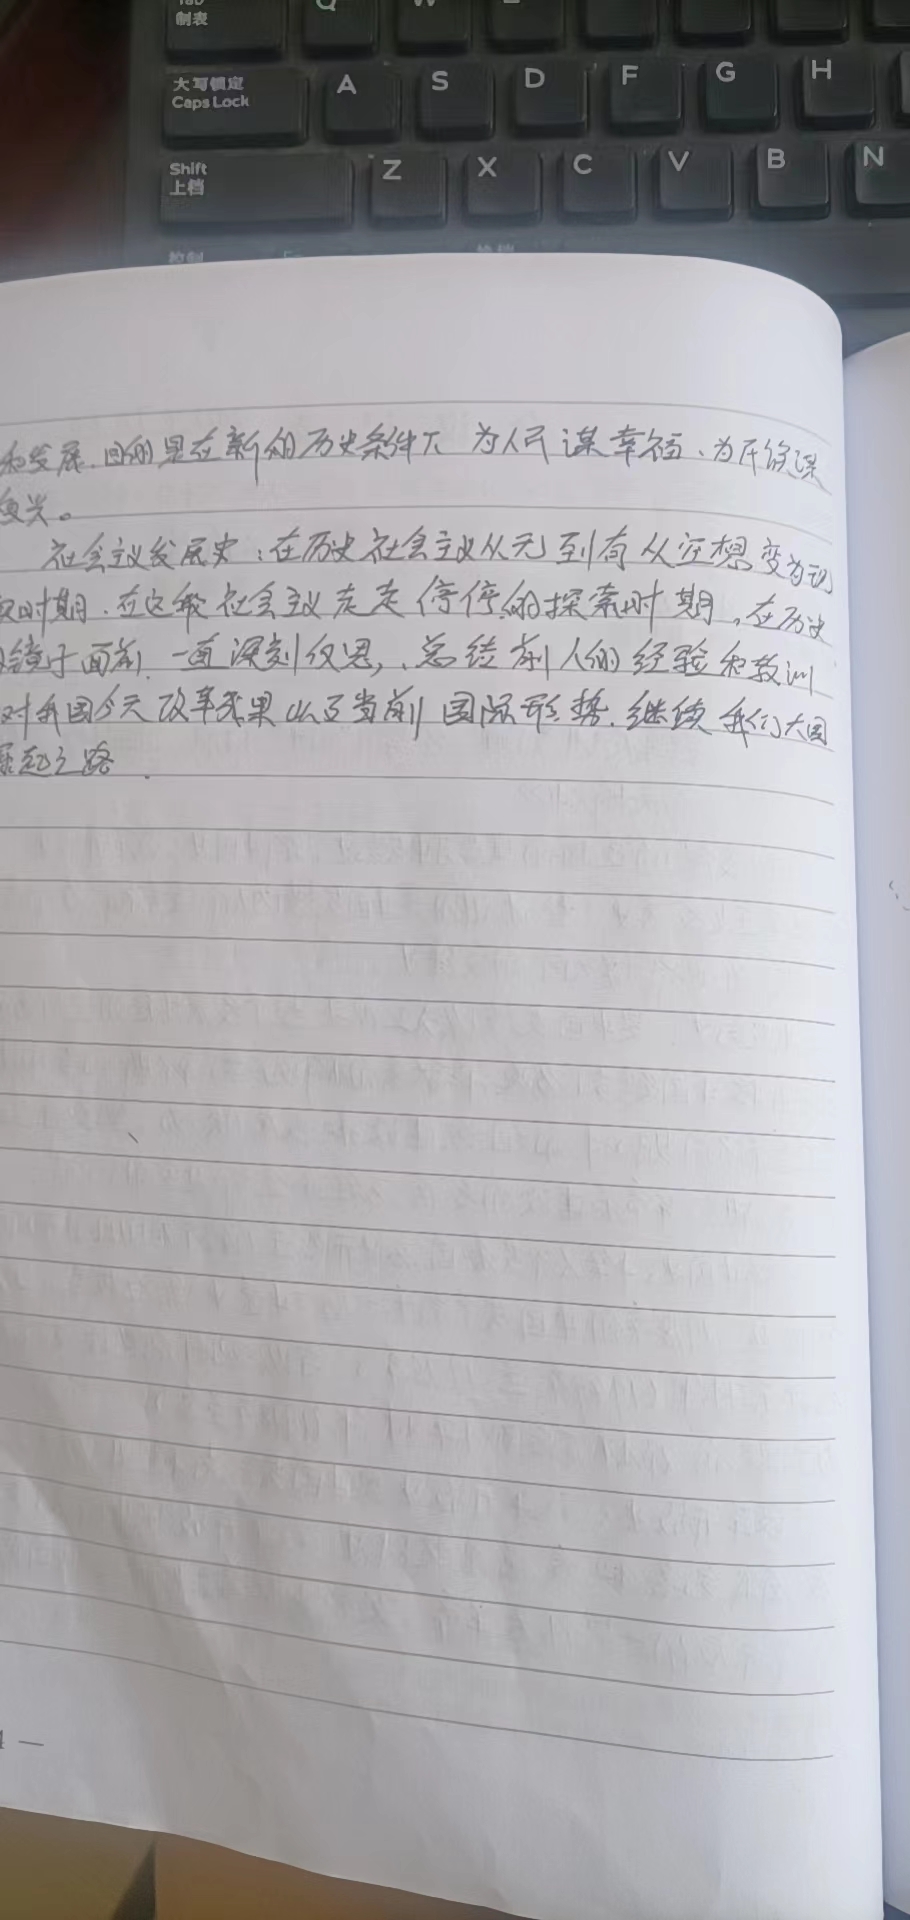 制表 Q W
大写锁定
Caps Lock A S D F G H
Shift
上档 Z X C V B N
和发展,目的是在新的历史条件下 为人民谋幸福、为民族谋
复兴。
社会主义发展史:在历史社会主义从无到有从空想变为现
时期.在这般社会主义走走停停的探索时期,在历史
镜子面前 一直深刻反思,总结前人的经验和教训
对我国今天改革成果以及当前国际形势.继续我们大国
崛起之路.
4 —